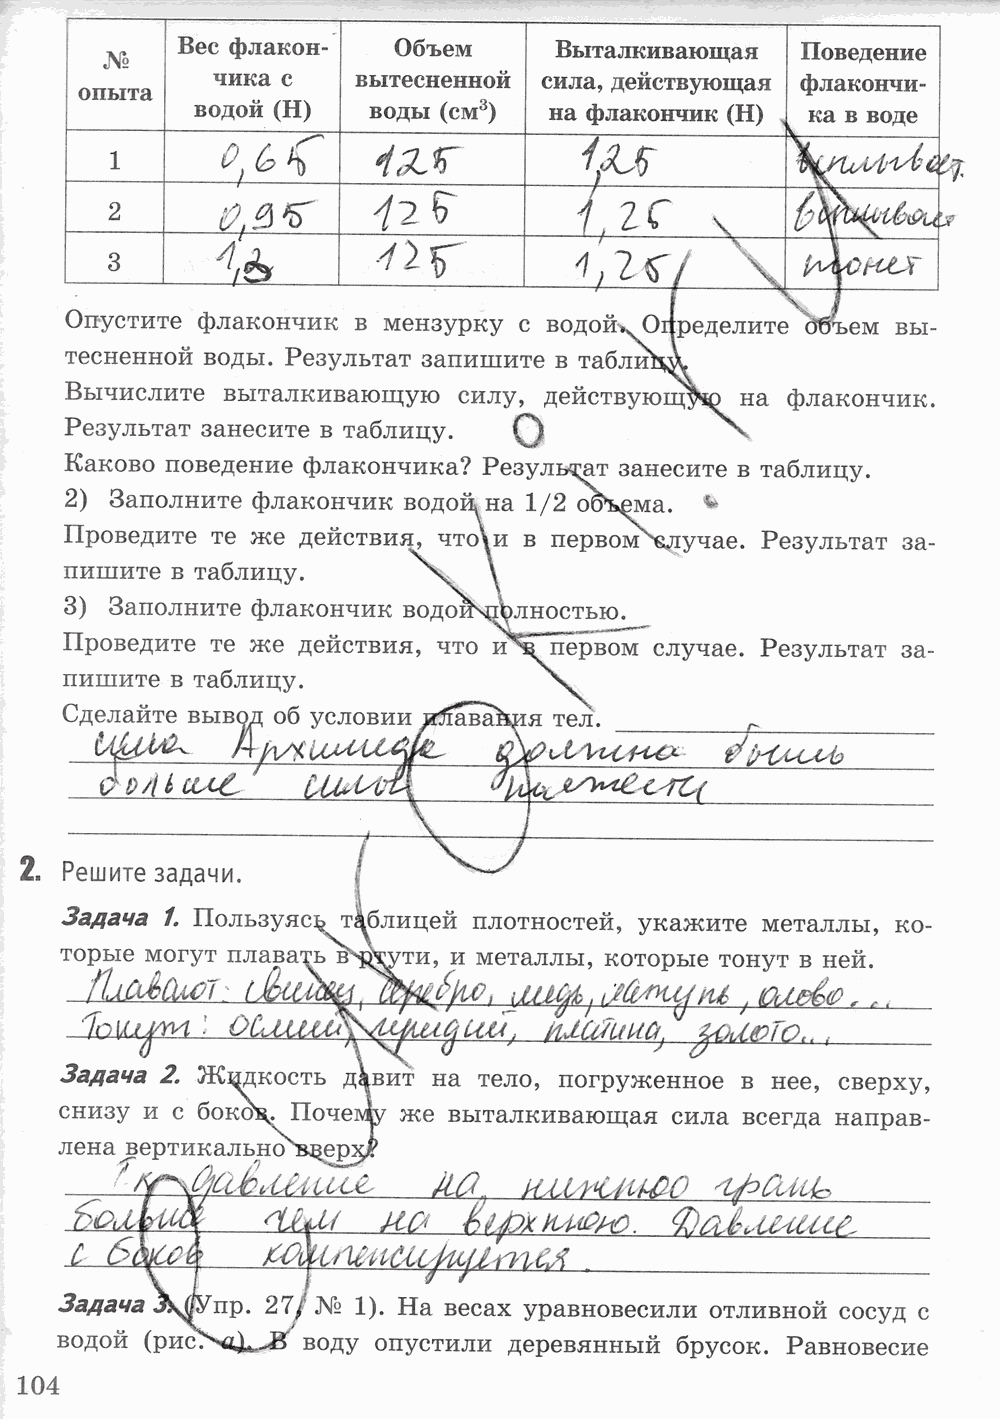 № опыта | Вес флакончика с водой (Н) | Объем вытесненной воды (см³) | Выталкивающая сила, действующая на флакончик (Н) | Поведение флакончика в воде
1 | 0,65 | 125 | 1,25 | всплывает.
2 | 0,95 | 125 | 1,25 | всплывает
3 | 1,3 | 125 | 1,25 | тонет
Опустите флакончик в мензурку с водой. Определите объем вы-
тесненной воды. Результат запишите в таблицу.
Вычислите выталкивающую силу, действующую на флакончик.
Результат занесите в таблицу.
Каково поведение флакончика? Результат занесите в таблицу.
2) Заполните флакончик водой на 1/2 объема.
Проведите те же действия, что и в первом случае. Результат за-
пишите в таблицу.
3) Заполните флакончик водой полностью.
Проведите те же действия, что и в первом случае. Результат за-
пишите в таблицу.
Сделайте вывод об условии плавания тел.
сила Архимеда должна быть
больше силы тяжести
2. Решите задачи.
Задача 1. Пользуясь таблицей плотностей, укажите металлы, ко-
торые могут плавать в ртути, и металлы, которые тонут в ней.
Плавают: свинец, серебро, медь, латунь, олово...
Тонут: осмий, иридий, платина, золото...
Задача 2. Жидкость давит на тело, погруженное в нее, сверху,
снизу и с боков. Почему же выталкивающая сила всегда направ-
лена вертикально вверх?
Тк давление на нижнюю грань
больше чем на верхнюю. Давление
с боков компенсируется.
Задача 3. (Упр. 27, № 1). На весах уравновесили отливной сосуд с
водой (рис. а). В воду опустили деревянный брусок. Равновесие
104